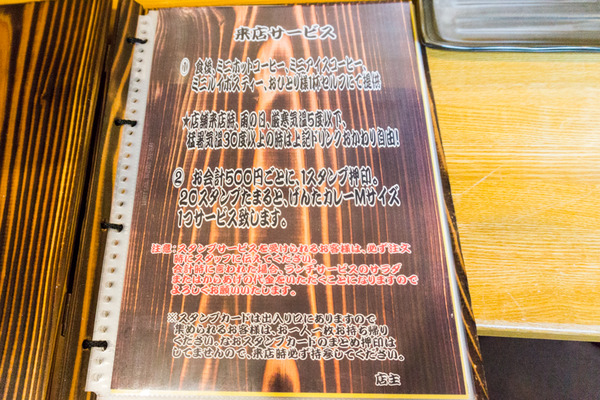 来店サービス
① 食後、ミニホットコーヒー、ミニアイスコーヒー、
ミニルイボスティー、おひとり様1杯セルフにて提供
★店舗来店時、雨の日、厳寒気温5度以下、
猛暑気温30度以上の時は上記ドリンクおかわり自由!
② お会計500円ごとに、1スタンプ押印。
20スタンプたまると、げんたカレーMサイズ
1つサービス致します。
注意:スタンプサービスを受けられるお客様は、必ず注文
時にスタッフに伝えてください。
会計時に言われた場合、ランチサービスのサラダ
またはからあげの代金をいただくことになりますので
よろしくお願いいたします。
※スタンプカードは出入り口にありますので
集められるお客様は、お一人一枚お持ち帰り
ください。なおスタンプカードのまとめ押印は
してませんので、来店時必ず持参してください。
店主